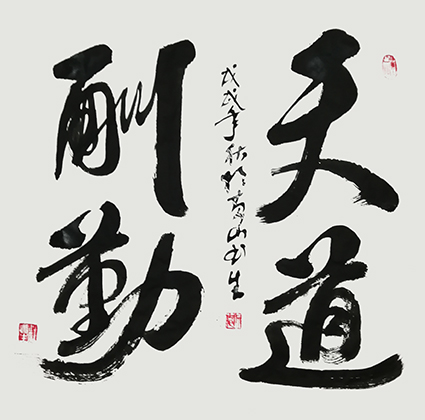 天道
酬勤
戊戌年秋於黄山书生